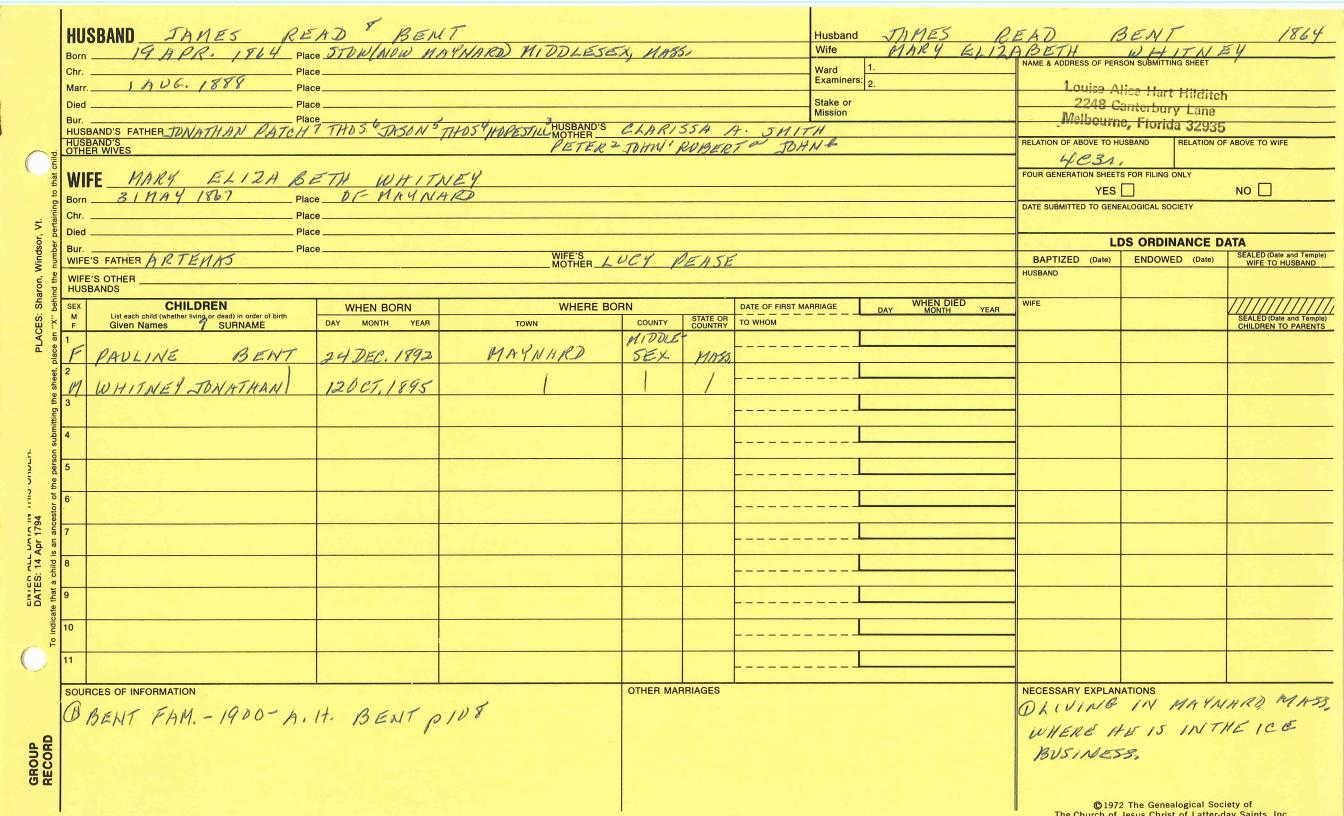 HUSBAND JAMES READ 8 BENT
Born 19 APR. 1864 Place STOW (NOW MAYNARD) MIDDLESEX, MASS.
Chr. Place
Marr. 1 AUG. 1888 Place
Died Place
Bur. Place
HUSBAND'S FATHER JONATHAN PATCH 7 THOS 6 JASON 5 THOS 4 HOPESTILL 3 HUSBAND'S MOTHER CLARISSA A. SMITH
HUSBAND'S OTHER WIVES PETER 2 JOHN 1 ROBERT a JOHN b
Husband JAMES READ BENT 1864
Wife MARY ELIZABETH WHITNEY
Ward Examiners: 1.
2.
Stake or Mission
NAME & ADDRESS OF PERSON SUBMITTING SHEET
Louise Alice Hart Hilditch
2248 Canterbury Lane
Melbourne, Florida 32935
RELATION OF ABOVE TO HUSBAND RELATION OF ABOVE TO WIFE
4C3r.
FOUR GENERATION SHEETS FOR FILING ONLY
YES NO
DATE SUBMITTED TO GENEALOGICAL SOCIETY
WIFE MARY ELIZABETH WHITNEY
Born 31 MAY 1867 Place OF MAYNARD
Chr. Place
Died Place
Bur. Place
WIFE'S FATHER ARTEMAS WIFE'S MOTHER LUCY PEASE
WIFE'S OTHER HUSBANDS
LDS ORDINANCE DATA
BAPTIZED (Date) ENDOWED (Date) SEALED (Date and Temple) WIFE TO HUSBAND
HUSBAND
WIFE
SEALED (Date and Temple) CHILDREN TO PARENTS
SEX M F
CHILDREN
List each child (whether living or dead) in order of birth
Given Names 9 SURNAME
WHEN BORN
DAY MONTH YEAR
WHERE BORN
TOWN COUNTY STATE OR COUNTRY
DATE OF FIRST MARRIAGE
TO WHOM
WHEN DIED
DAY MONTH YEAR
1 F PAULINE BENT 24 DEC. 1892 MAYNARD MIDDLE-SEX MASS
2 M WHITNEY JONATHAN | 12 OCT. 1895 | | |
3
4
5
6
7
8
9
10
11
SOURCES OF INFORMATION
① BENT FAM. - 1900 - A.H. BENT p108
OTHER MARRIAGES
NECESSARY EXPLANATIONS
① LIVING IN MAYNARD, MASS.
WHERE HE IS IN THE ICE
BUSINESS.
©1972 The Genealogical Society of
The Church of Jesus Christ of Latter-day Saints, Inc.
GROUP RECORD
ENTER ALL DATA IN THIS ORDER:
DATES: 14 Apr 1794
PLACES: Sharon, Windsor, Vt.
To indicate that a child is an ancestor of the person submitting the sheet, place an "X" behind the number pertaining to that child.